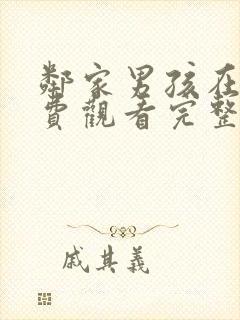 鄰家男孩在
費觀看完整
戚其義